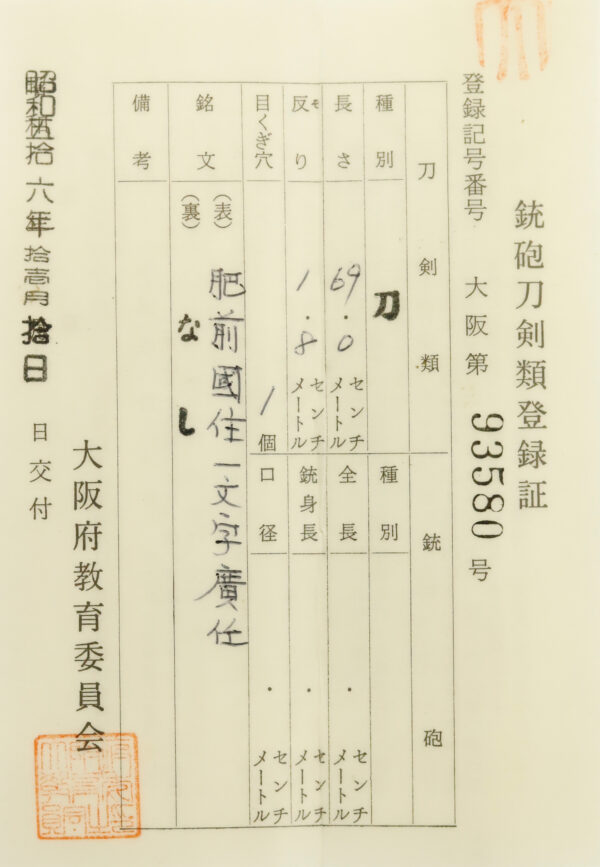 銃砲刀剣類登録証
登録記号番号 大阪第 93580 号
刀剣類 銃砲
種別 刀
長さ 69.0 センチメートル
反り モ 1.8 センチメートル
目くぎ穴 1個
銘文 (表) 肥前國住一文字廣任
(裏) なし
備考
種別
全長 . センチメートル
銃身長 . センチメートル
口径 . センチメートル
昭和五拾六年拾壱月拾日 日交付
大阪府教育委員会